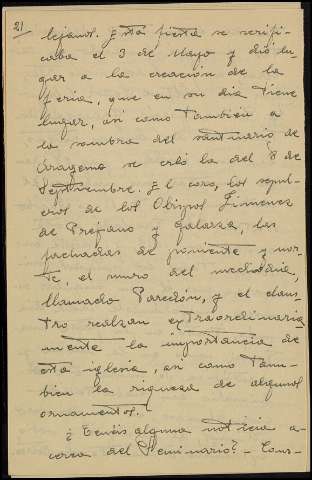 21
lejanos. Esta fiesta se verifi-
caba el 3 de Mayo y dió lu-
gar a la creación de la
feria, que en su dia tiene
lugar, así como también a
la sombra del santuario de
Aragema se creó la del 8 de
Septiembre. El coro, los sepul-
cros de los Obispos Jimenez
de Préjano y Galarza, las
fachadas de poniente y nor-
te, el muro del mediodia,
llamado Paredón, y el claus-
tro realzan extraordinaria-
mente la importancia de
esta iglesia, así como tam-
bien la riqueza de algunos
ornamentos.
¿Teneis alguna noticia a-
cerca del Seminario? - Cons-